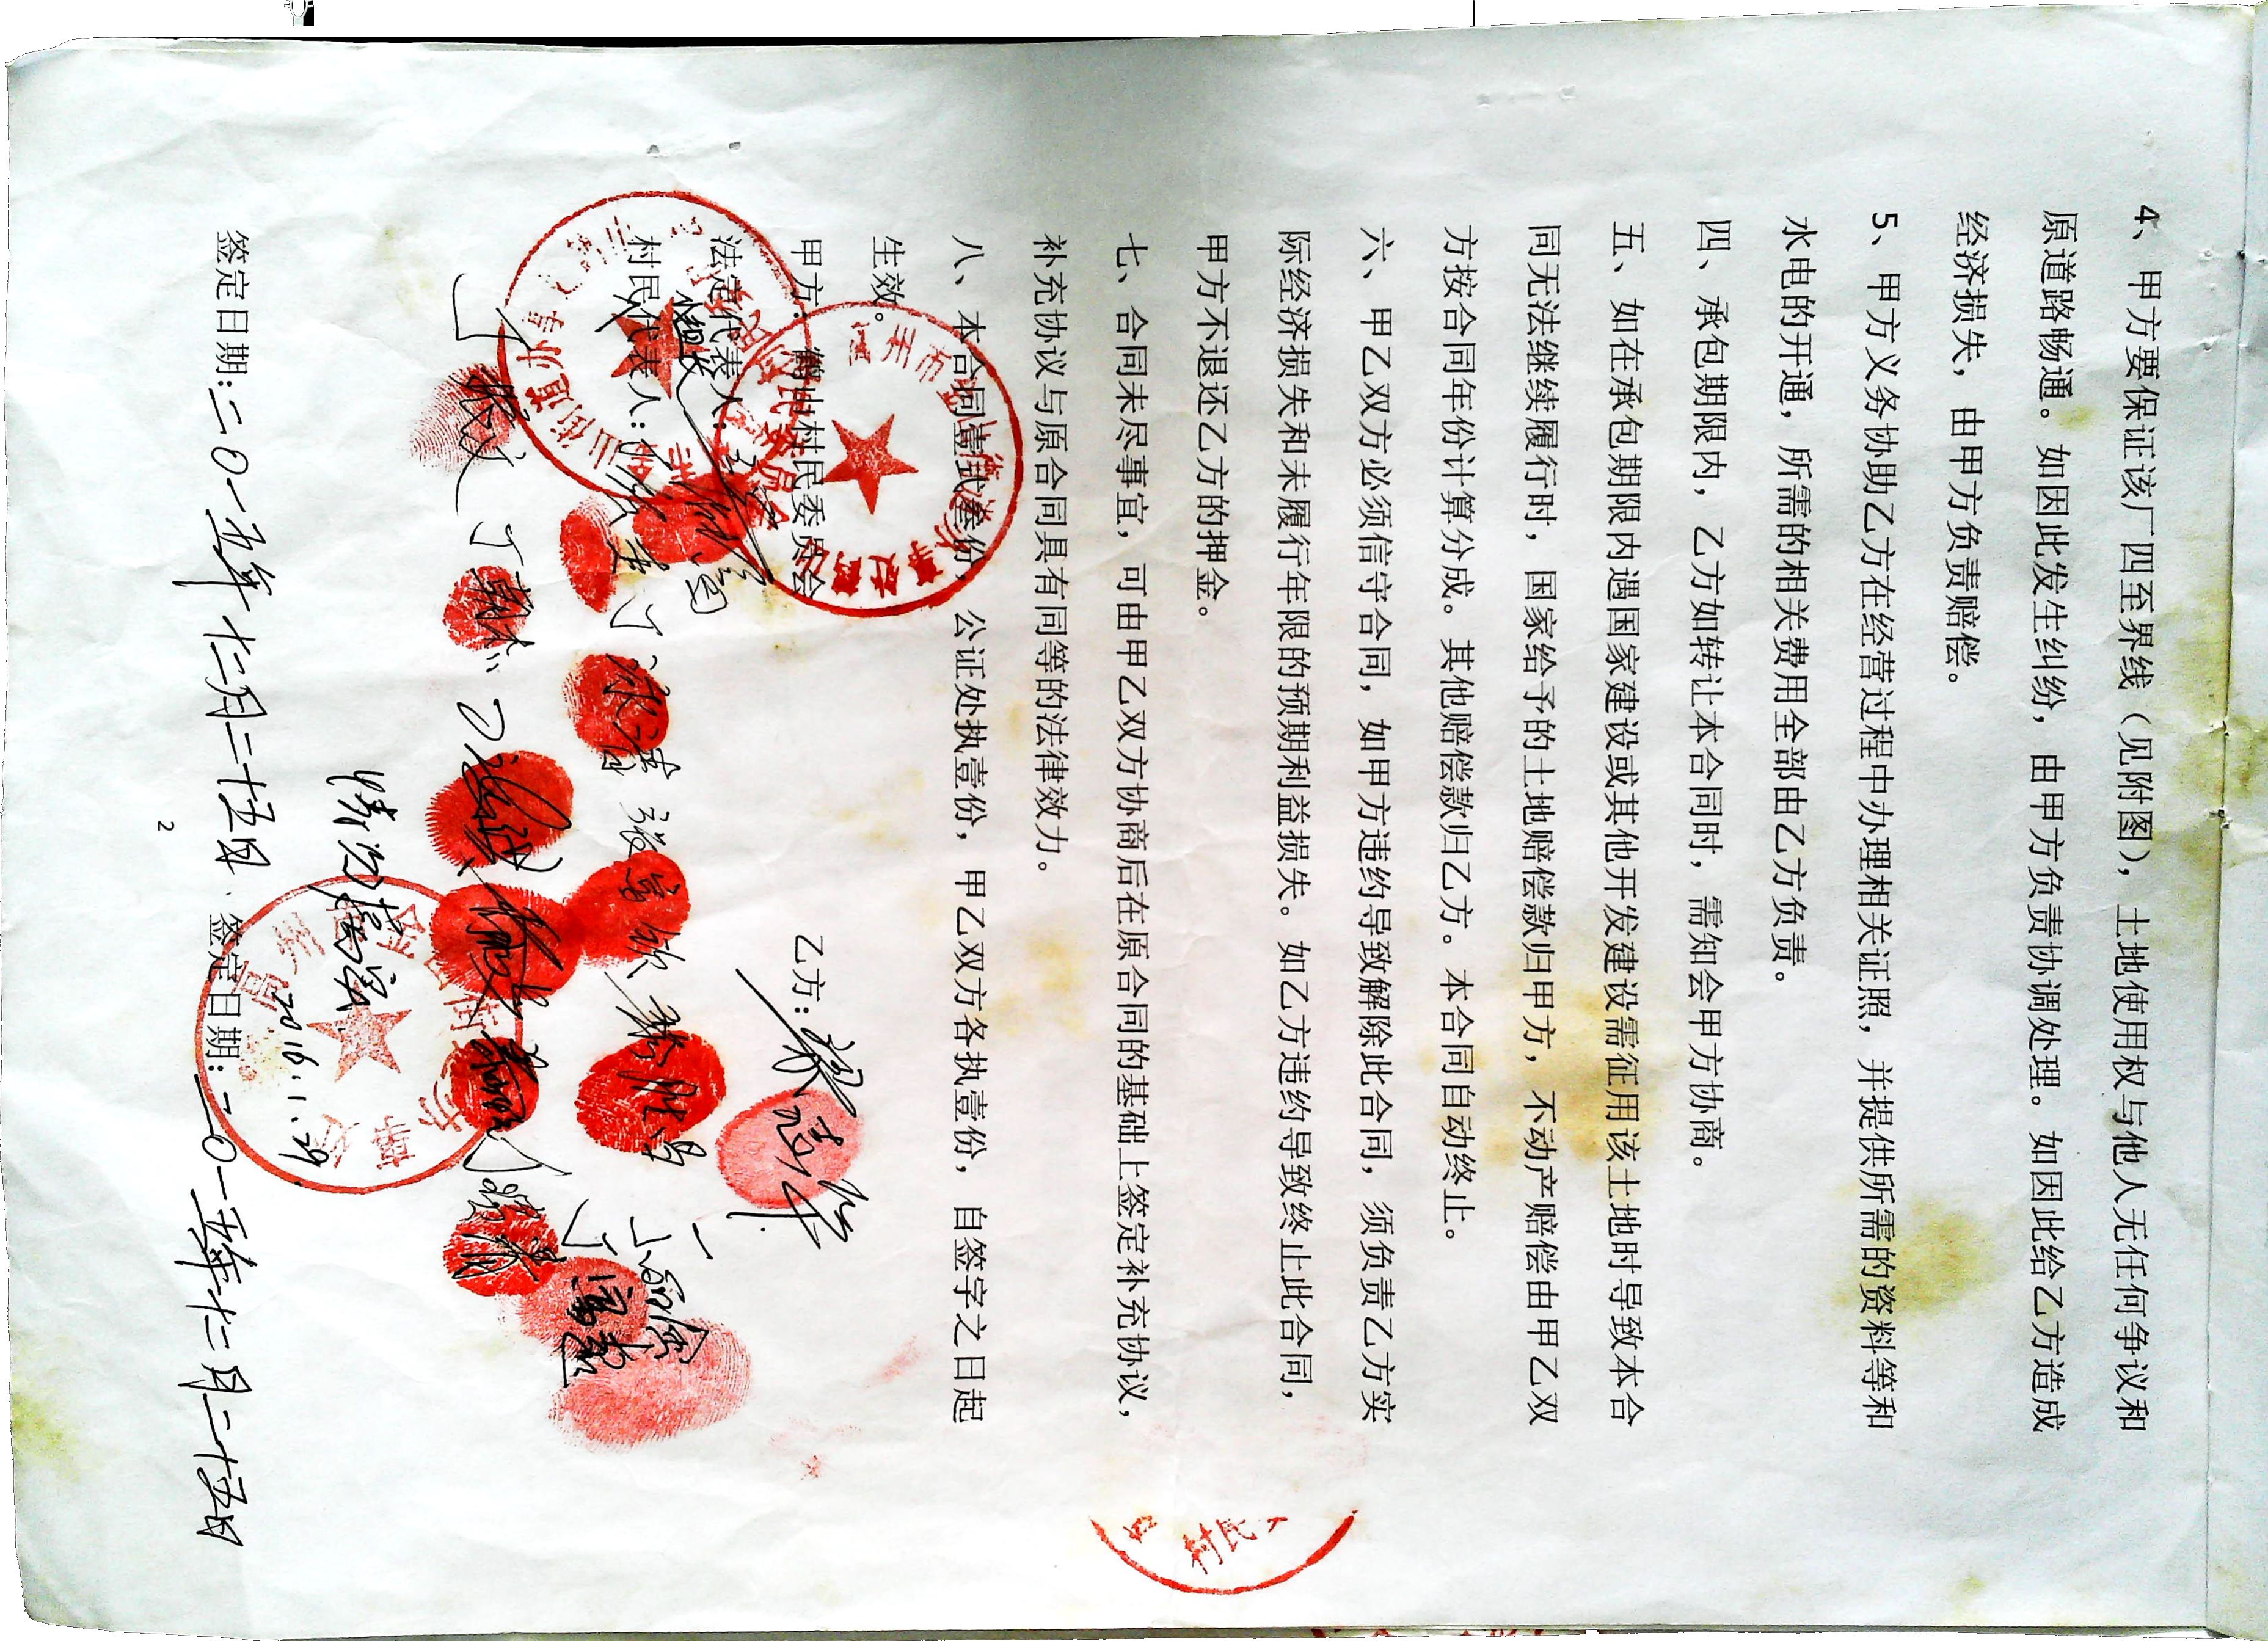 4、甲方要保证该厂四至界线（见附图），土地使用权与他人无任何争议和
原道路畅通。如因此发生纠纷，由甲方负责协调处理。如因此给乙方造成
经济损失，由甲方负责赔偿。
5、甲方义务协助乙方在经营过程中办理相关证照，并提供所需的资料等和
水电的开通，所需的相关费用全部由乙方负责。
四、承包期限内，乙方如转让本合同时，需知会甲方协商。
五、如在承包期限内遇国家建设或其他开发建设需征用该土地时导致本合
同无法继续履行时，国家给予的土地赔偿款归甲方，不动产赔偿由甲乙双
方按合同年份计算分成。其他赔偿款归乙方。本合同自动终止。
六、甲乙双方必须信守合同，如甲方违约导致解除此合同，须负责乙方实
际经济损失和未履行年限的预期利益损失。如乙方违约导致终止此合同，
甲方不退还乙方的押金。
七、合同未尽事宜，可由甲乙双方协商后在原合同的基础上签定补充协议，
补充协议与原合同具有同等的法律效力。
八、本合同壹式叁份，公证处执壹份，甲乙双方各执壹份，自签字之日起
生效。
甲方：鹤山村民委员会
乙方：
法定代表人：
村民代表人：
情况属实
2016.1.29
签定日期：二0一五年十二月二十五日 签定日期：二0一五年十二月二十五日
2
村民